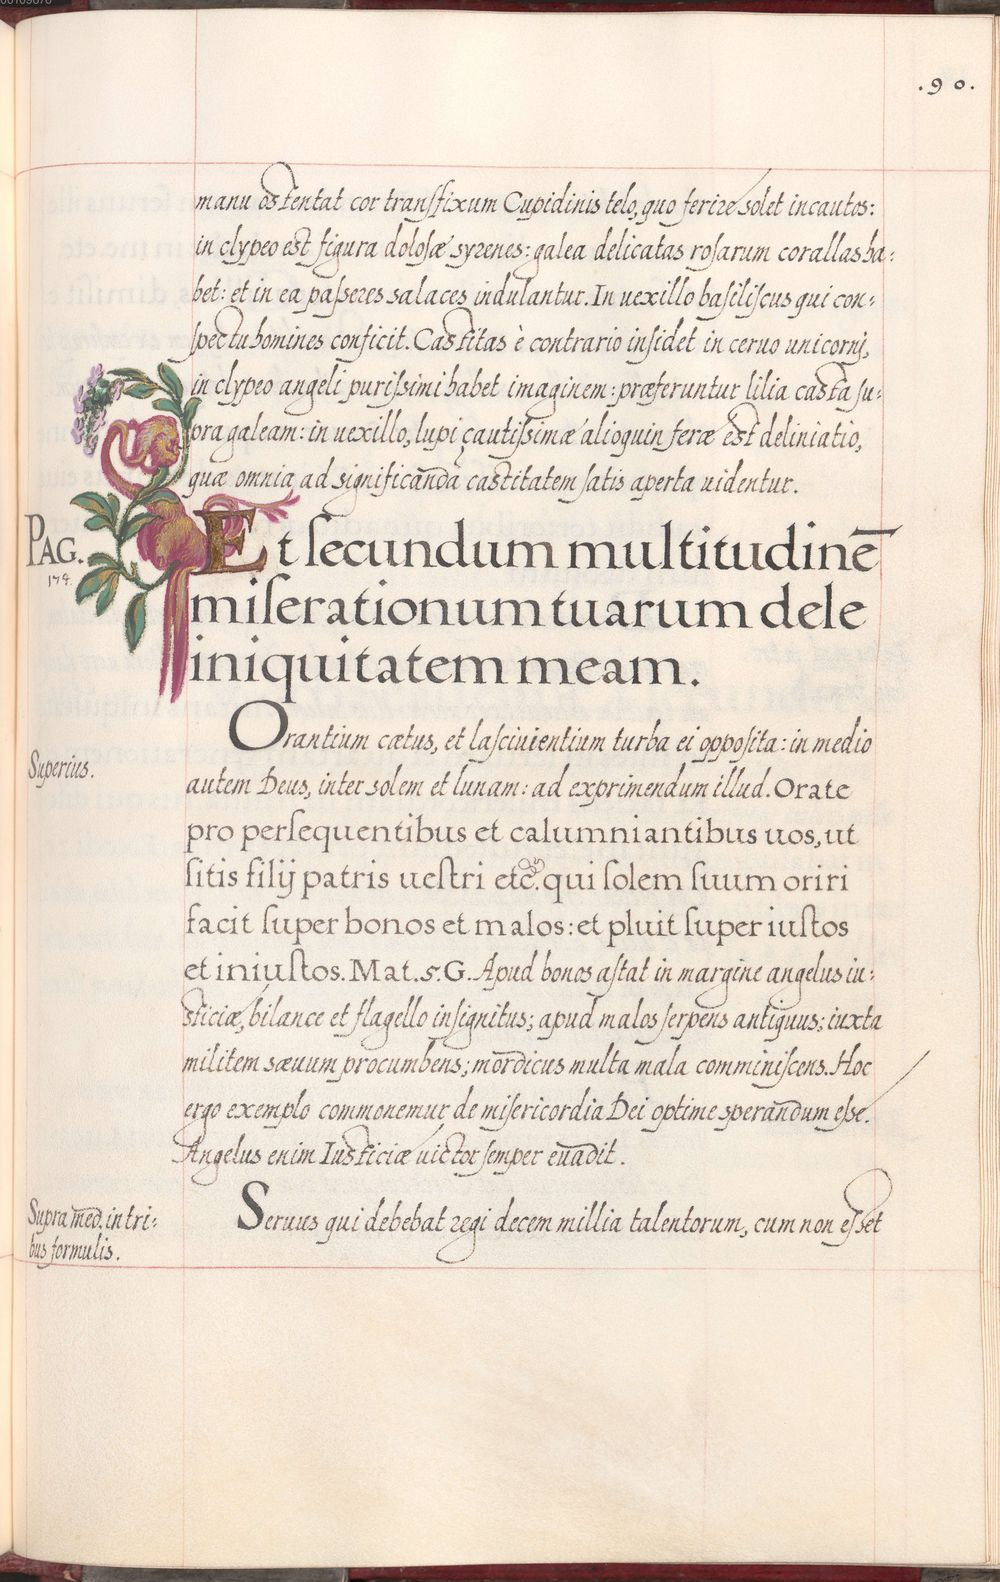 00109870
.90.
manu ostentat cor transfixum Cupidinis telo, quo ferire solet incautos:
in clypeo est figura dolosæ syrenes: galea delicatas rosarum corallas ha-
bet: et in ea passeres salaces indulantur. In uexillo basiliscus qui con-
spectu homines conficit. Castitas è contrario insidet in ceruo unicorni,
in clypeo angeli purissimi habet imaginem: præferuntur lilia casta su-
pra galeam: in uexillo, lupi çautissimæ alioquin feræ est deliniatio,
quæ omnia ad significandā castitatem satis aperta uidentur.
PAG.
174.
Et secundum multitudinē
miserationum tuarum dele
iniquitatem meam.
Superius.
Orantium cætus, et lasciuientium turba ei opposita: in medio
autem Deus, inter solem et lunam: ad exprimendum illud. Orate
pro persequentibus et calumniantibus uos, ut
sitis filij patris uestri etc. qui solem suum oriri
facit super bonos et malos: et pluit super iustos
et iniustos. Mat. 5. G. Apud bonos astat in margine angelus iu-
sticiæ, bilance et flagello insignitus; apud malos serpens antiquus; iuxta
militem sæuum procumbens; mordicus multa mala comminiscens. Hoc
ergo exemplo commonemur de misericordia Dei optime sperandum esse.
Angelus enim Iusticiæ uictor semper euadit.
Supra med. in tri-
bus formulis.
Seruus qui debebat regi decem millia talentorum, cum non esset